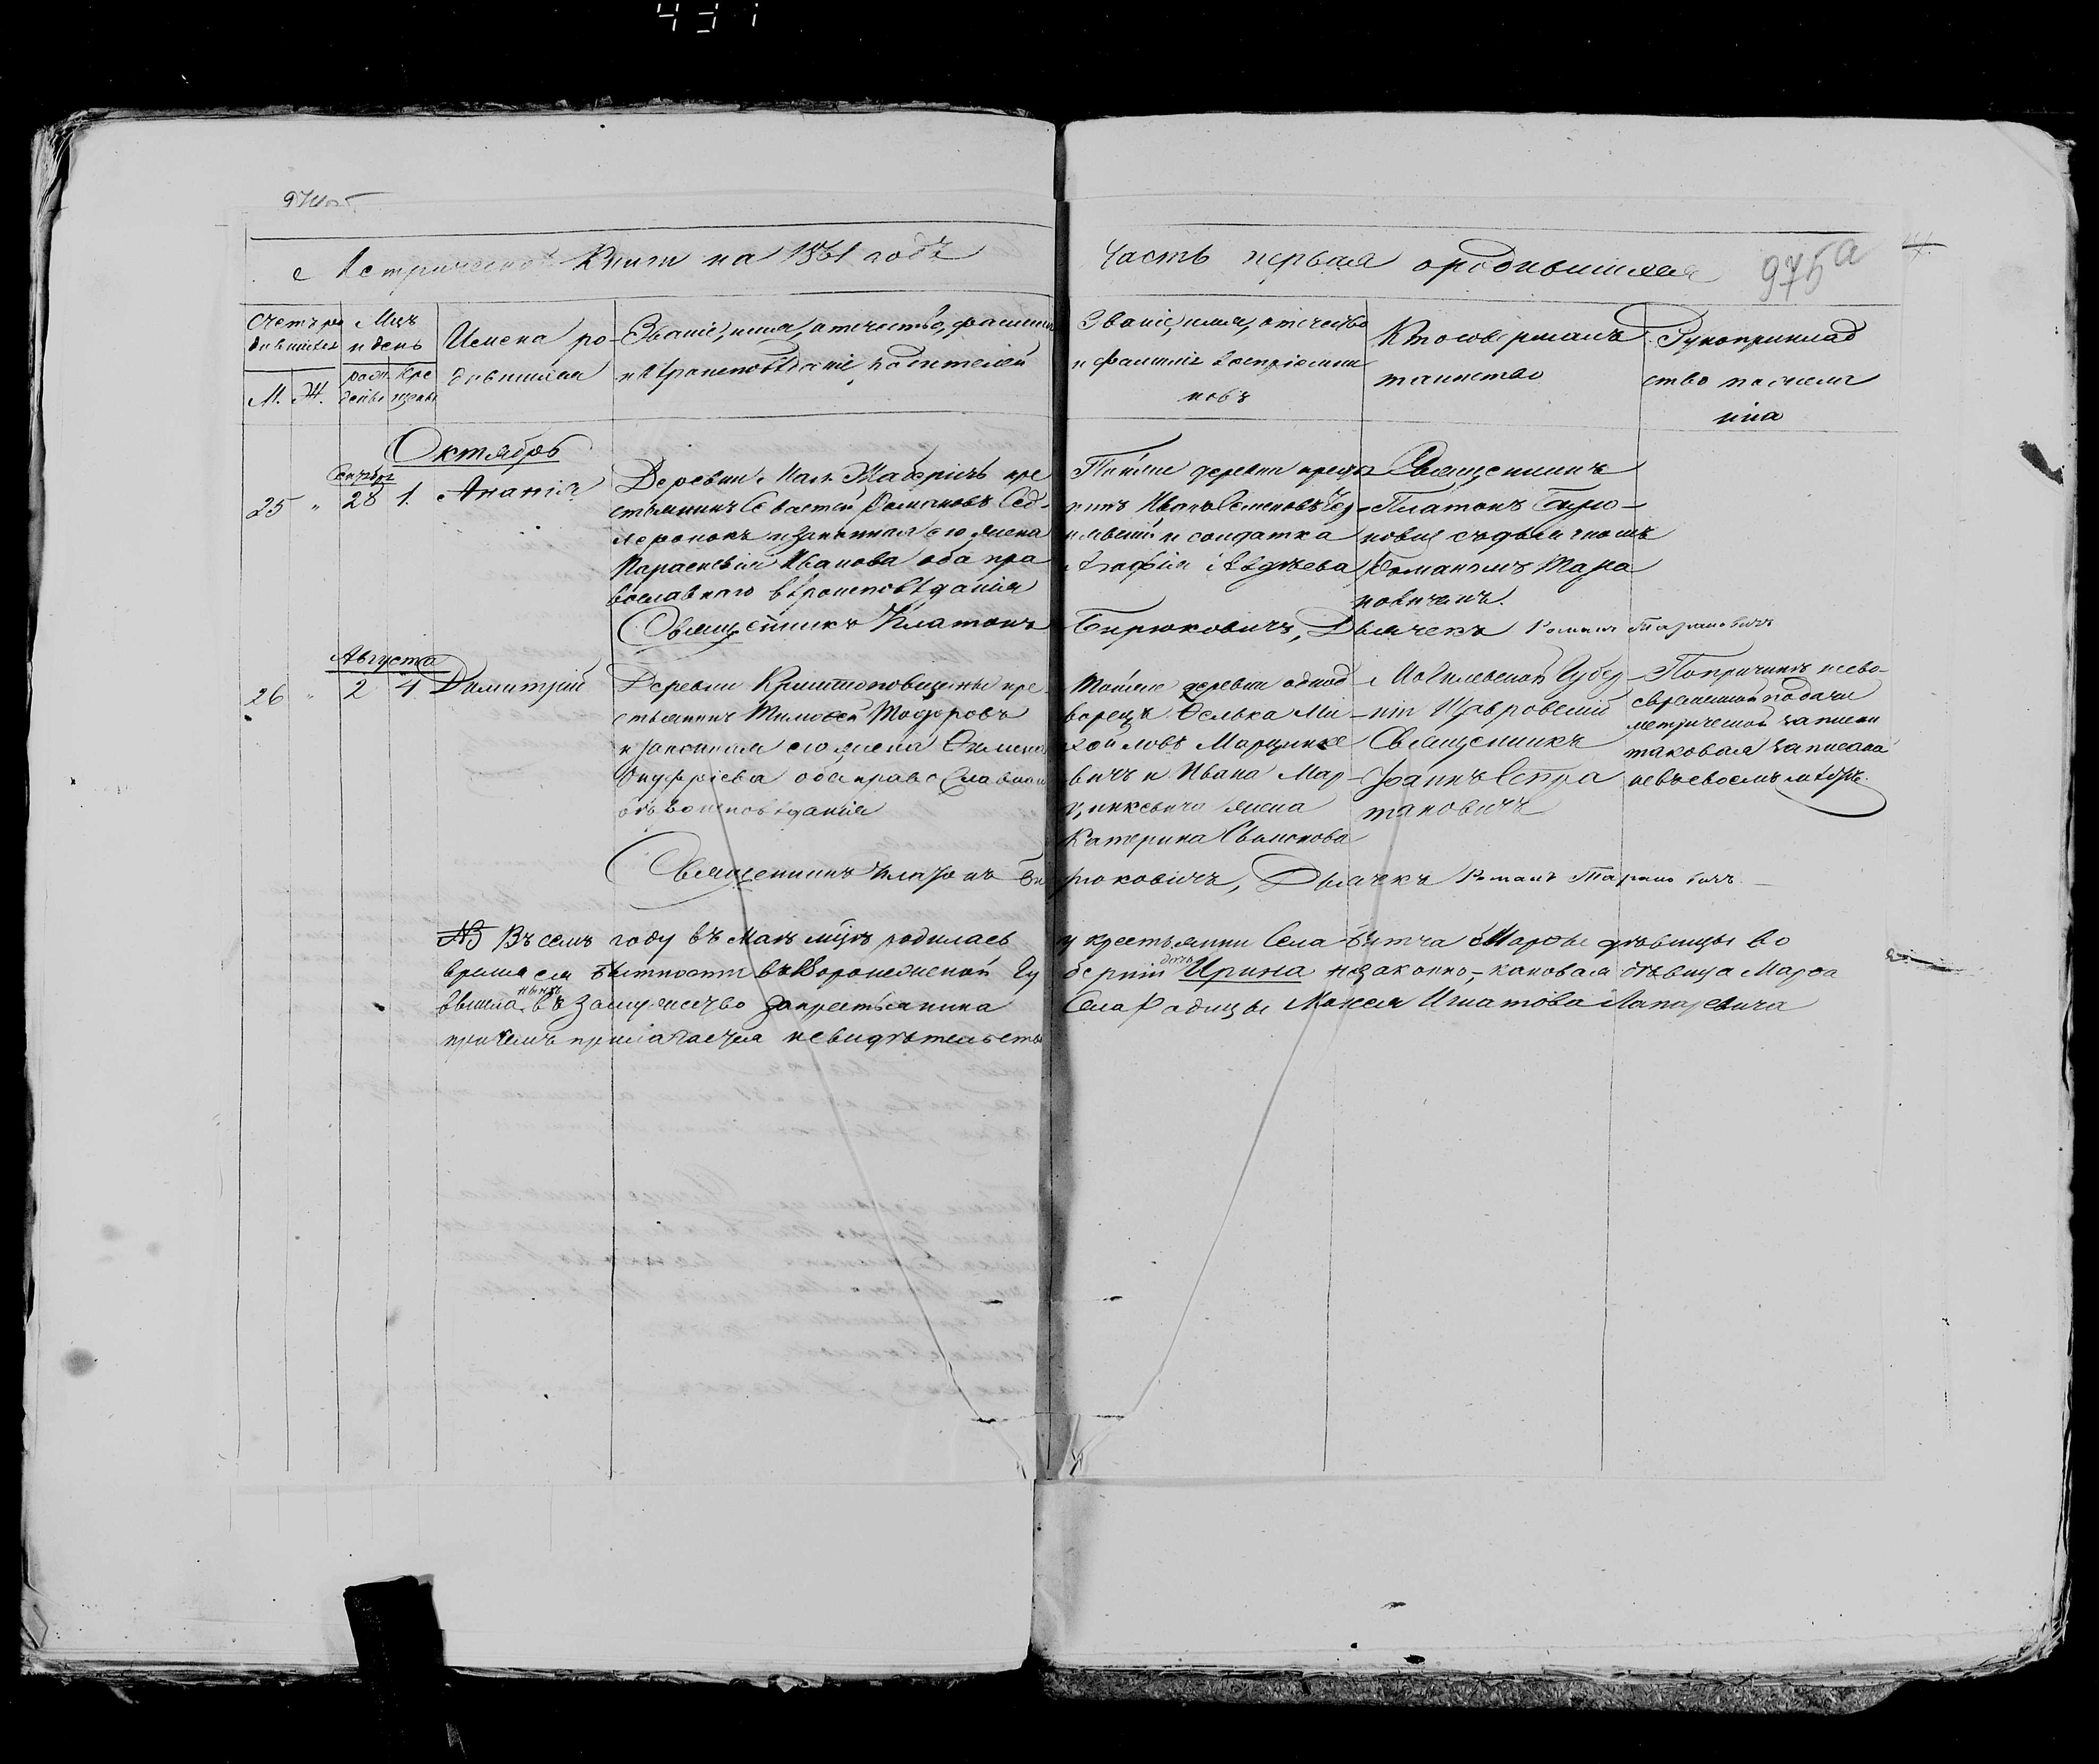 431
974об
Метрической Книги на 1861 годъ
Часть первая о родившихся
975а
Счетъ ро
дившихся
Мцъ
и день
Имена ро-
дившихся
Званіе, имя, отчество, фамилія
и Вѣроисповѣданіе родителей
М. Ж.
рож
денія
Кре
щенія
Званіе, имя, отчество
и фамилія воспріемни
ковъ
Кто совершалъ
таинство
Рукоприклад
ство
Октябрь
25 " 28 1. Ананія
Деревни кре
стьянинъ Романовъ
и законная его жена
Параскевія Иванова оба пра
вославнаго вѣроисповѣданія
Тойже деревни
Иванъ Семеновъ
и солдатка
Агафія Авдѣева
Священникъ
Платонъ Бирю-
ковичъ съ дьячкомъ
Романомъ Тара
новичемъ.
Священникъ Платонъ Бирюковичъ, Дьячекъ Романъ Тарановичъ
Августа
26 " 2 4 Димитрій
Деревни кре
стьянинъ Тимофей Тодоровъ
и законная его жена
Онуфріева оба православнаго
вѣроисповѣданія
Тойже деревни однод
ворецъ Феська Ми
хайловъ Марцинке
вичъ и Ивана Мар
цинкевича жена
Катерина
Могилевской Губер
ніи
Священникъ
Іоаннъ Стра
тановичъ
По причинѣ несво-
евременной подачи
метрической записки
таковая записана
не въ своемъ мѣстѣ.
Священникъ Платонъ Бирюковичъ, Дьячекъ Романъ Тарановичъ
NB Въ семъ году въ Маѣ мцѣ родилась у крестьянки Села Марѳы дѣвицы во
время ея бытности въ Воронежской Губерніи дочь Ирина незаконно, - каковая дѣвица Марѳа
вышла нынѣ въ замужество за крестьянина Села Радицы Игнатова
при чемъ прилагается